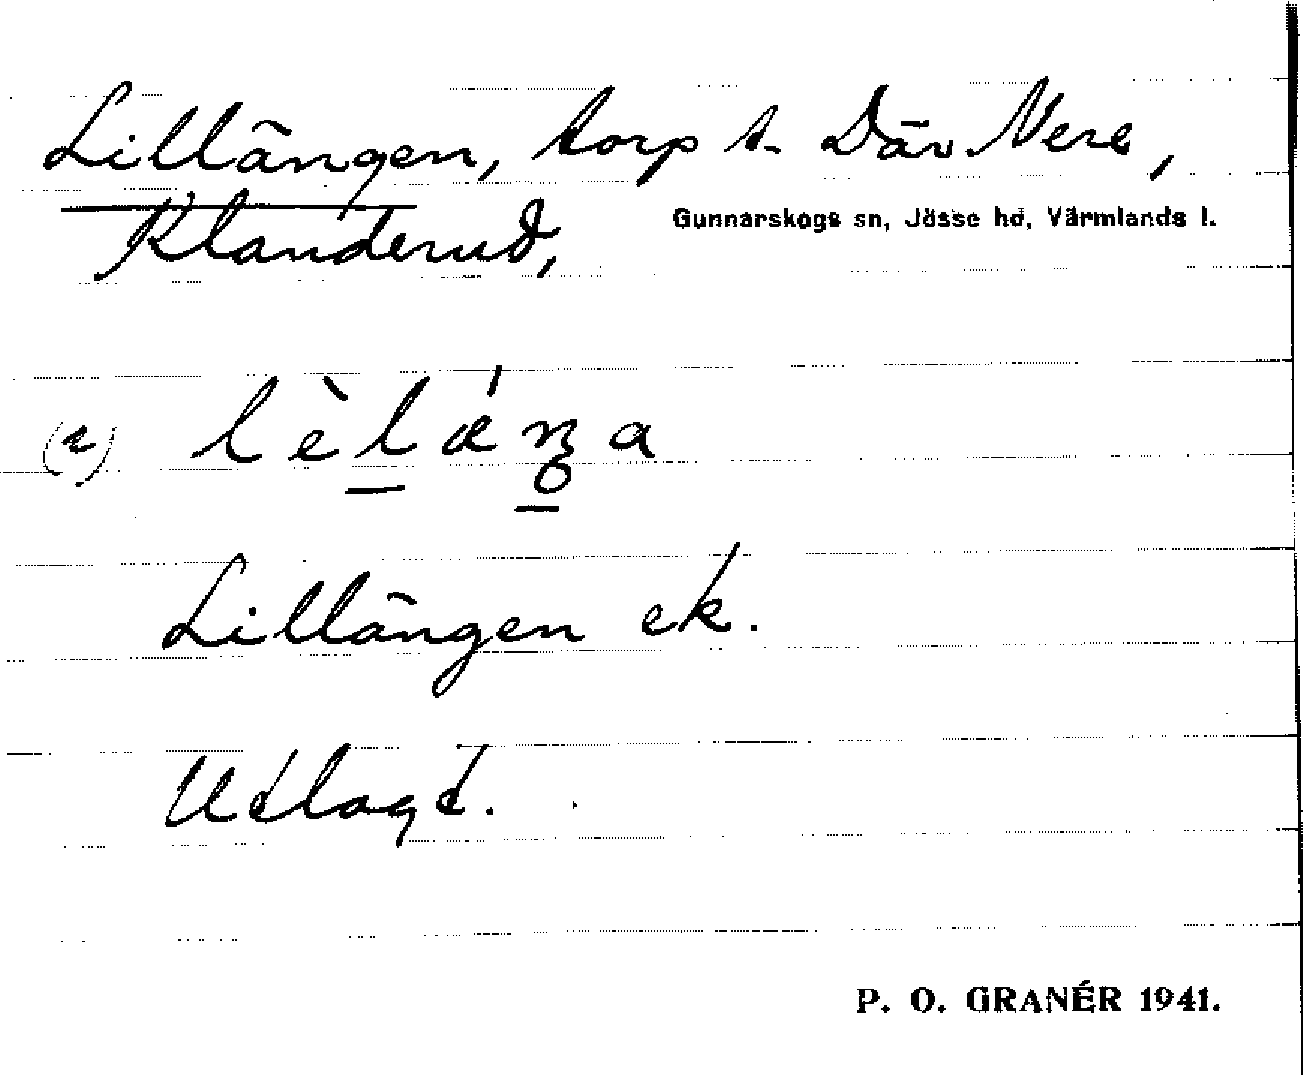 Lillängen, torp t. Där Nere,
Klanderud,
Gunnarskogs sn, Jösse hd, Värmlands l.
lèlǽŋa
Lillängen ek.
Utlagt.
P. O. GRANÉR 1941.